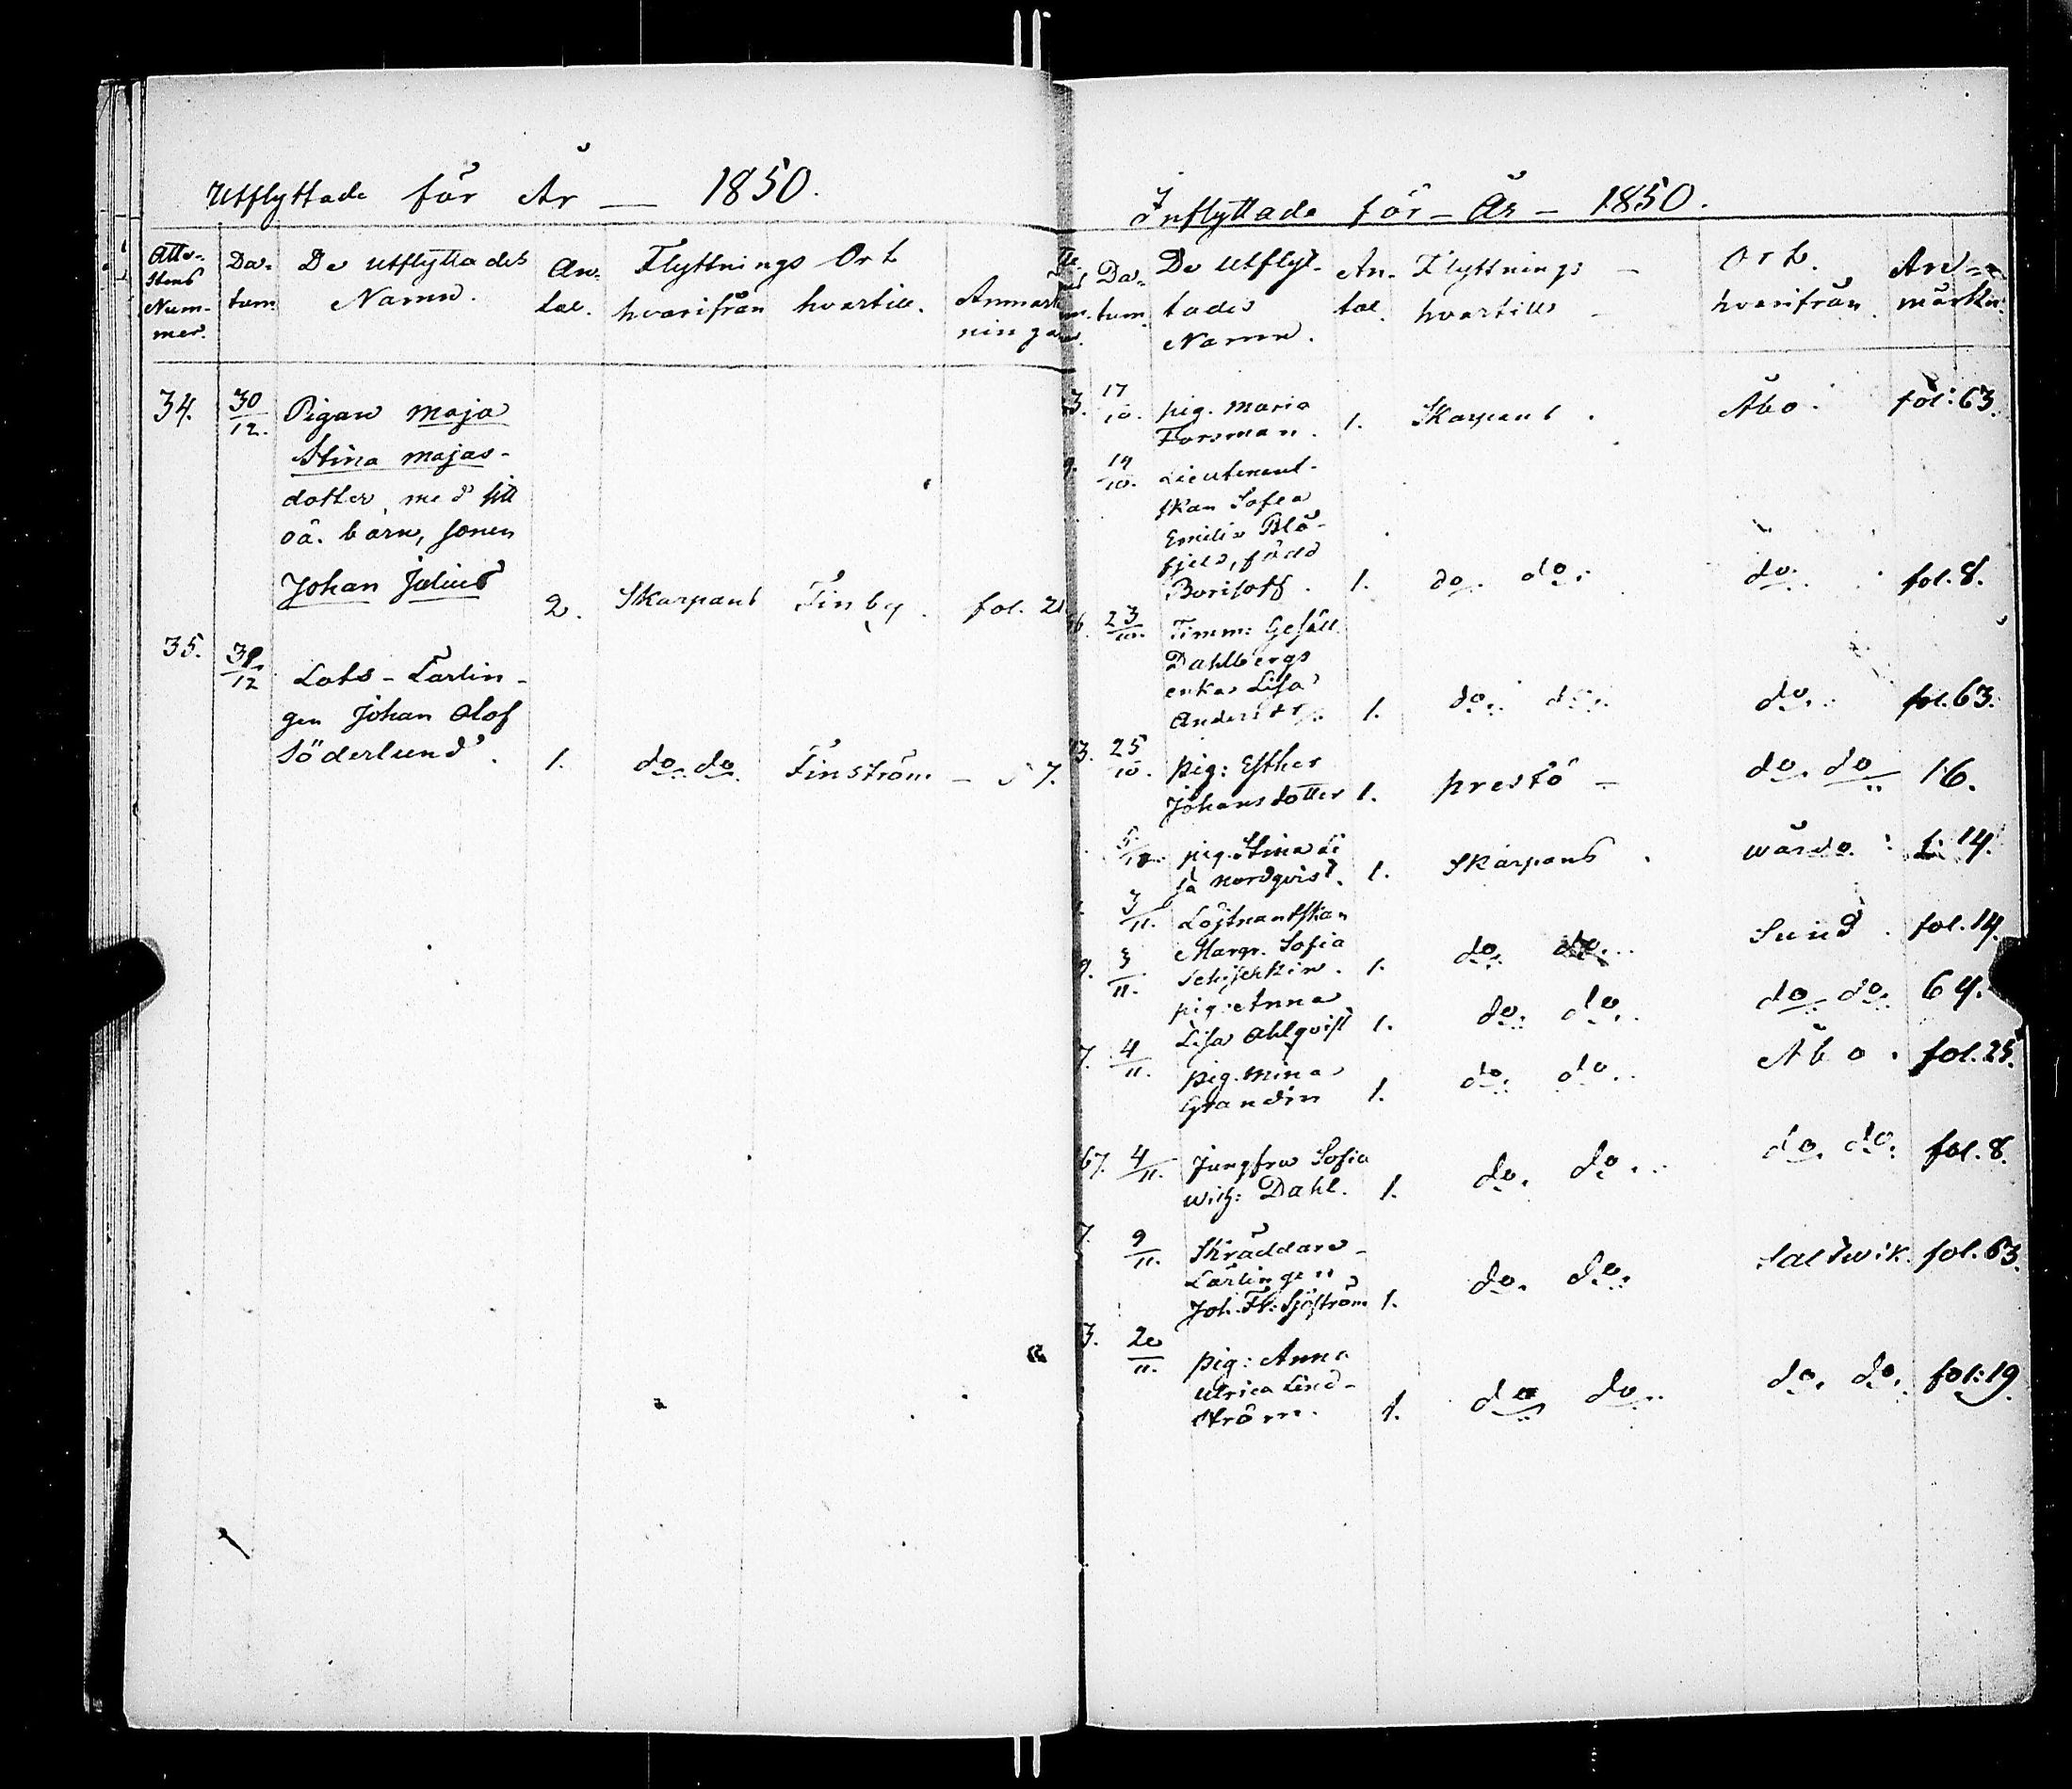 Utflyttade för År — 1850.
Atte-
stens
Num-
mer.
Da-
tum.
De utflyttades
Namn.
An-
tal.
Flyttnings Ort
hvarifrån hvartill.
Anmärk
ningar
34. 30/12. Pigan Maja
Stina Majas-
dotter, med sitt
oä. barn, sonen
Johan Julius 2. Skarpans Finby. fol. 21
35. 31/12 Lots-Lärlin-
gen Johan Olof
Söderlund. 1. do. do. Finström - 57.
Inflyttade för - År - 1850.
Da-
tum.
De utflyt-
tades
Namn.
An-
tal.
Flyttnings -
hvartill -
Ort.
hvarifrån.
An-
märkn:
3. 17/10. pig. Maria
Forsman. 1. Skarpans. Åbo. fol: 63.
9. 19/10. Lieutenant-
skan Sofia
Emilia Blå-
fjeld, född
Borisoff. 1. do. do. do. fol. 8.
6. 23/10. Timm: Gesäll.
Dahlbergs
enka Lisa
Andersdr. 1. do. do. do. fol. 63.
3. 25/10. pig: Esther
Johansdotter 1. prestö - do. do 16.
pig. Stina Li
sa Nordqvist. 1. Skarpans. Wårdö: 14.
3/11. Löjtnantskan
Margr. Sofia
Schischkin. 1. do. do. Sund. fol. 14.
9. 3/11. pig: Anna
Lisa Ahlqvist 1. do. do. do. do. 64.
7. 4/11. pig. Mina
Grandin 1. do. do. Åbo. fol. 25.
67. 4/11. Jungfru Sofia
Wilh: Dahl. 1. do. do. do. do. fol. 8.
7. 9/11. Skräddare-
Lärlingen
Joh. Fr: Sjöström 1. do. do. Saltwik. fol. 63.
3. 20/11. pig: Anna
Ulrica Lind-
ström. 1. do do. do. do. fol: 19.